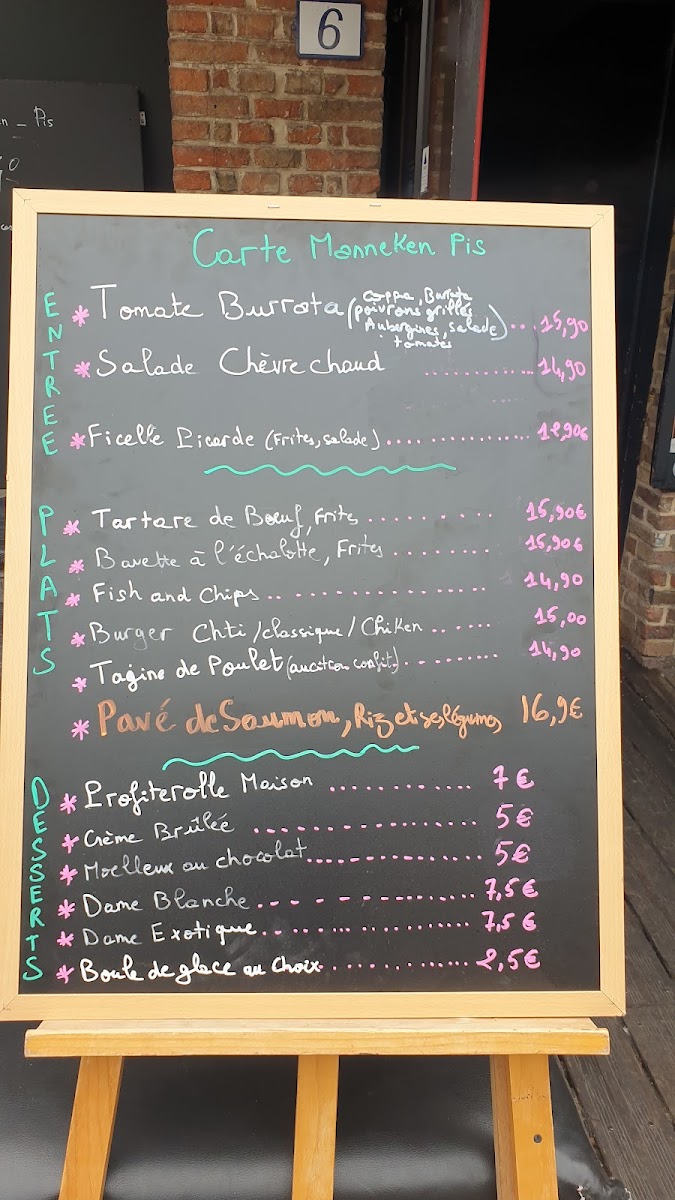 6
Pis
Carte Manneken Pis
ENTREE
* Tomate Burrata (coppa, Burrata
poivrons grillés
Aubergines, salade
tomates) ... 15,90
* Salade Chèvre chaud ............ 14,90
* Ficelle Picarde (Frites, salade) ............... 12,90€
PLATS
* Tartare de Bœuf, Frites .......... 15,90€
* Bavette à l'échalotte, Frites ......... 15,90€
* Fish and Chips .................. 14,90
* Burger Chti / classique / Chiken ....... 15,00
* Tagine de Poulet (au citron confit) .......... 14,90
* Pavé de Saumon, Riz et ses légumes 16,9€
DESSERTS
* Profiterolle Maison ............ 7€
* Crème Brûlée .................. 5€
* Moelleux au chocolat ............... 5€
* Dame Blanche ................. 7,5€
* Dame Exotique ................. 7,5€
* Boule de glace au Choix ............... 2,5€